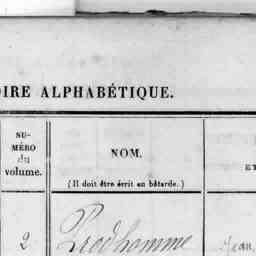 OIRE ALPHABÉTIQUE.
NU-
MÉRO
du
volume.
NOM.
(Il doit être écrit en bâtarde.)
ET
2 Prodhomme Jean,